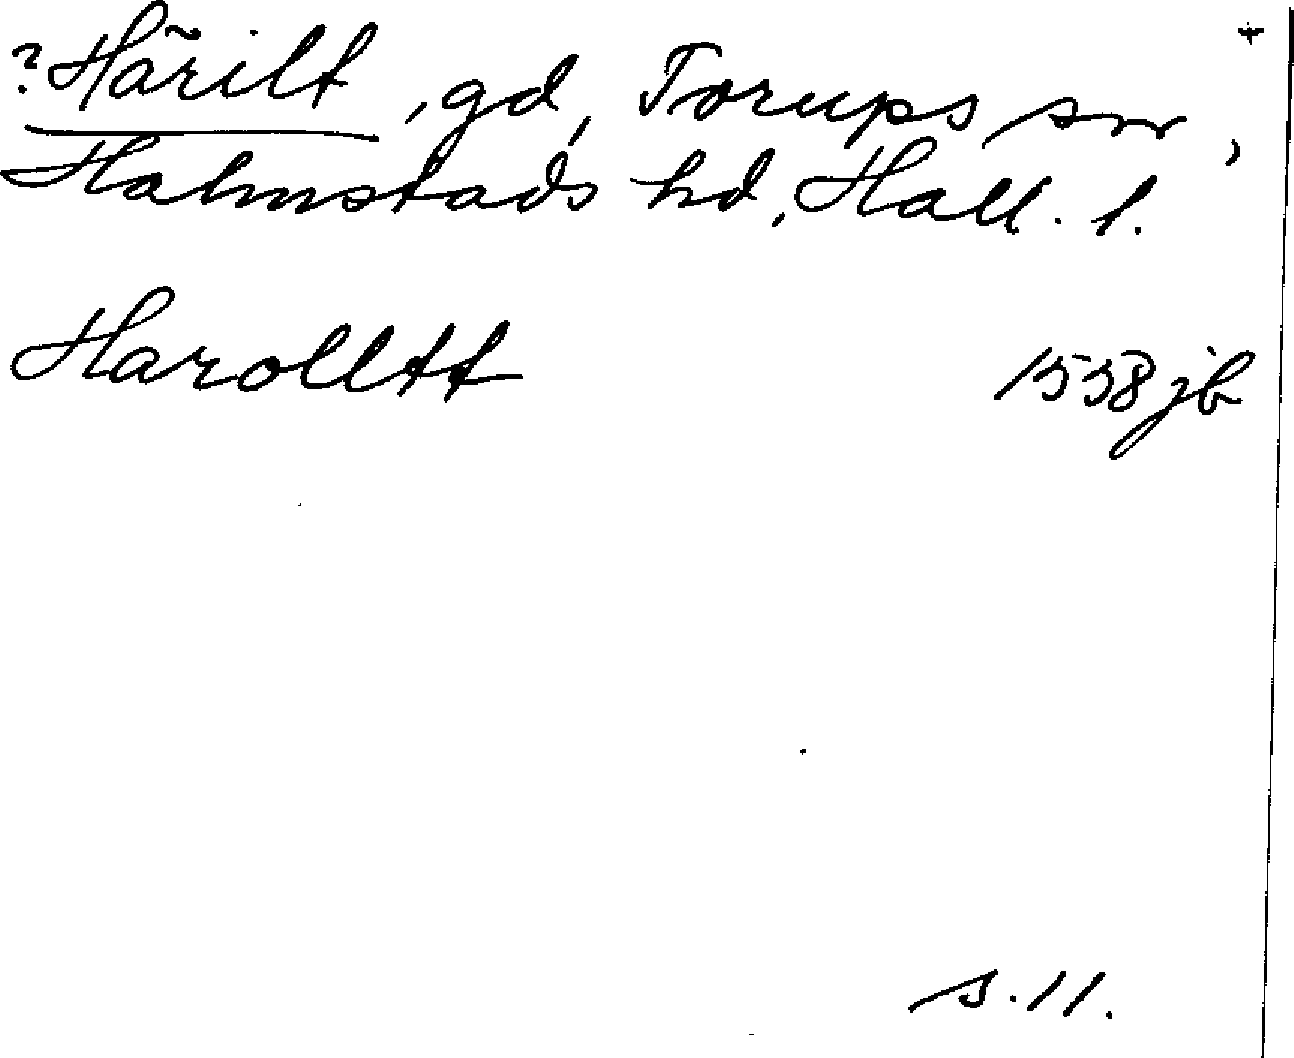 ?Härilt, gd, Torups sn,
Halmstads hd, Hall. l.
Harolltt 1538 jb
s. 11.